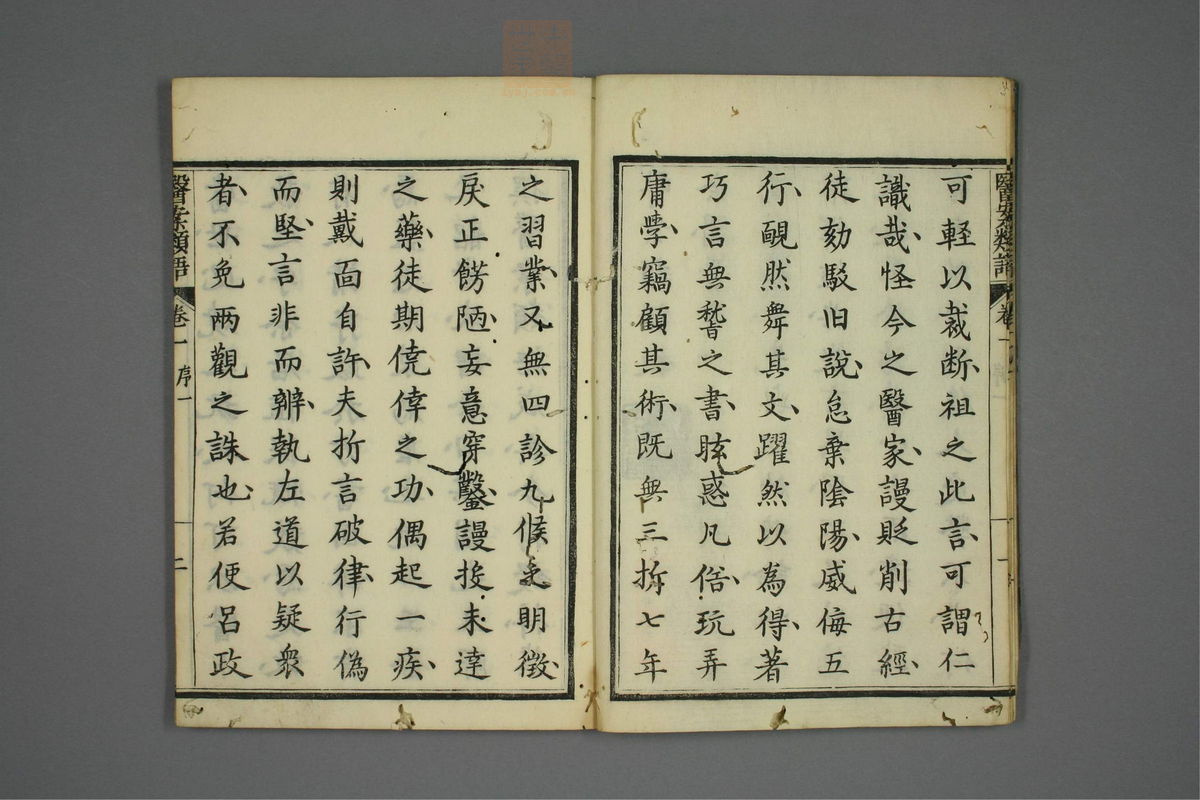 醫案類語 卷一
可軽以裁断祖之此言可謂仁
識哉怪今之醫家謾貶削古經
徒劾駁旧說怠棄陰陽威侮五
行靦然舞其文躍然以為得著
巧言無嵆之書眩惑凡俗玩弄
庸學竊顧其術既無三折七年
之習業又無四診九候之明徵
戾正餝陋妄意穿鑿謾投未達
之藥徒期僥倖之功偶起一疾
則戴面自許夫折言破律行偽
而堅言非而辨執左道以疑衆
者不免兩觀之誅也若便呂政
醫案類語 卷一 序一 二